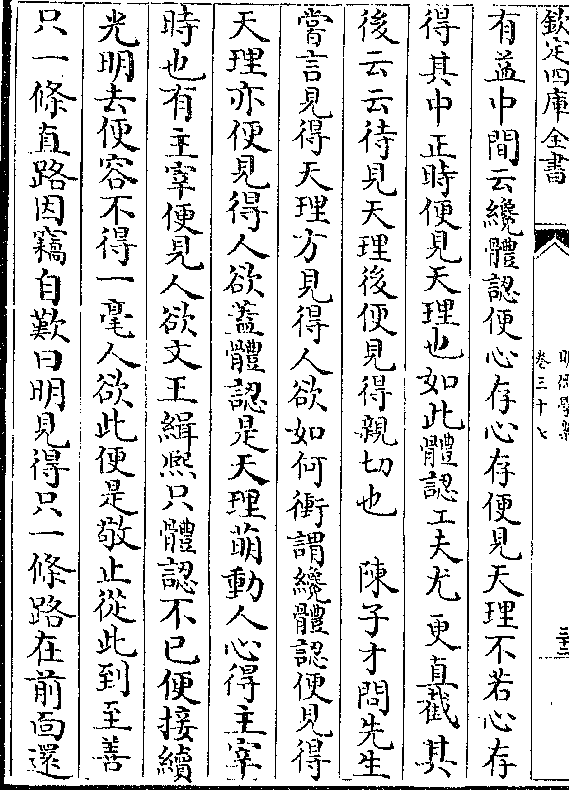 欽定四庫全書
明儒學案
卷三十七
三十三
有蓋中間云纔體認便心存心存便見天理不若心存
得其中正時便見天理也如此體認工夫尤更直截其
後云云待見天理後便見得親切也 陳子才問先生
嘗言見得天理方見得人欲如何衝謂纔體認便見得
天理亦便見得人欲蓋體認是天理萌動人心得主宰
時也有主宰便見人欲文王緝熙只體認不已便接續
光明去便容不得一毫人欲此便是敬止從此到至善
只一條直路因竊自歎曰明見得只一條路在前面還